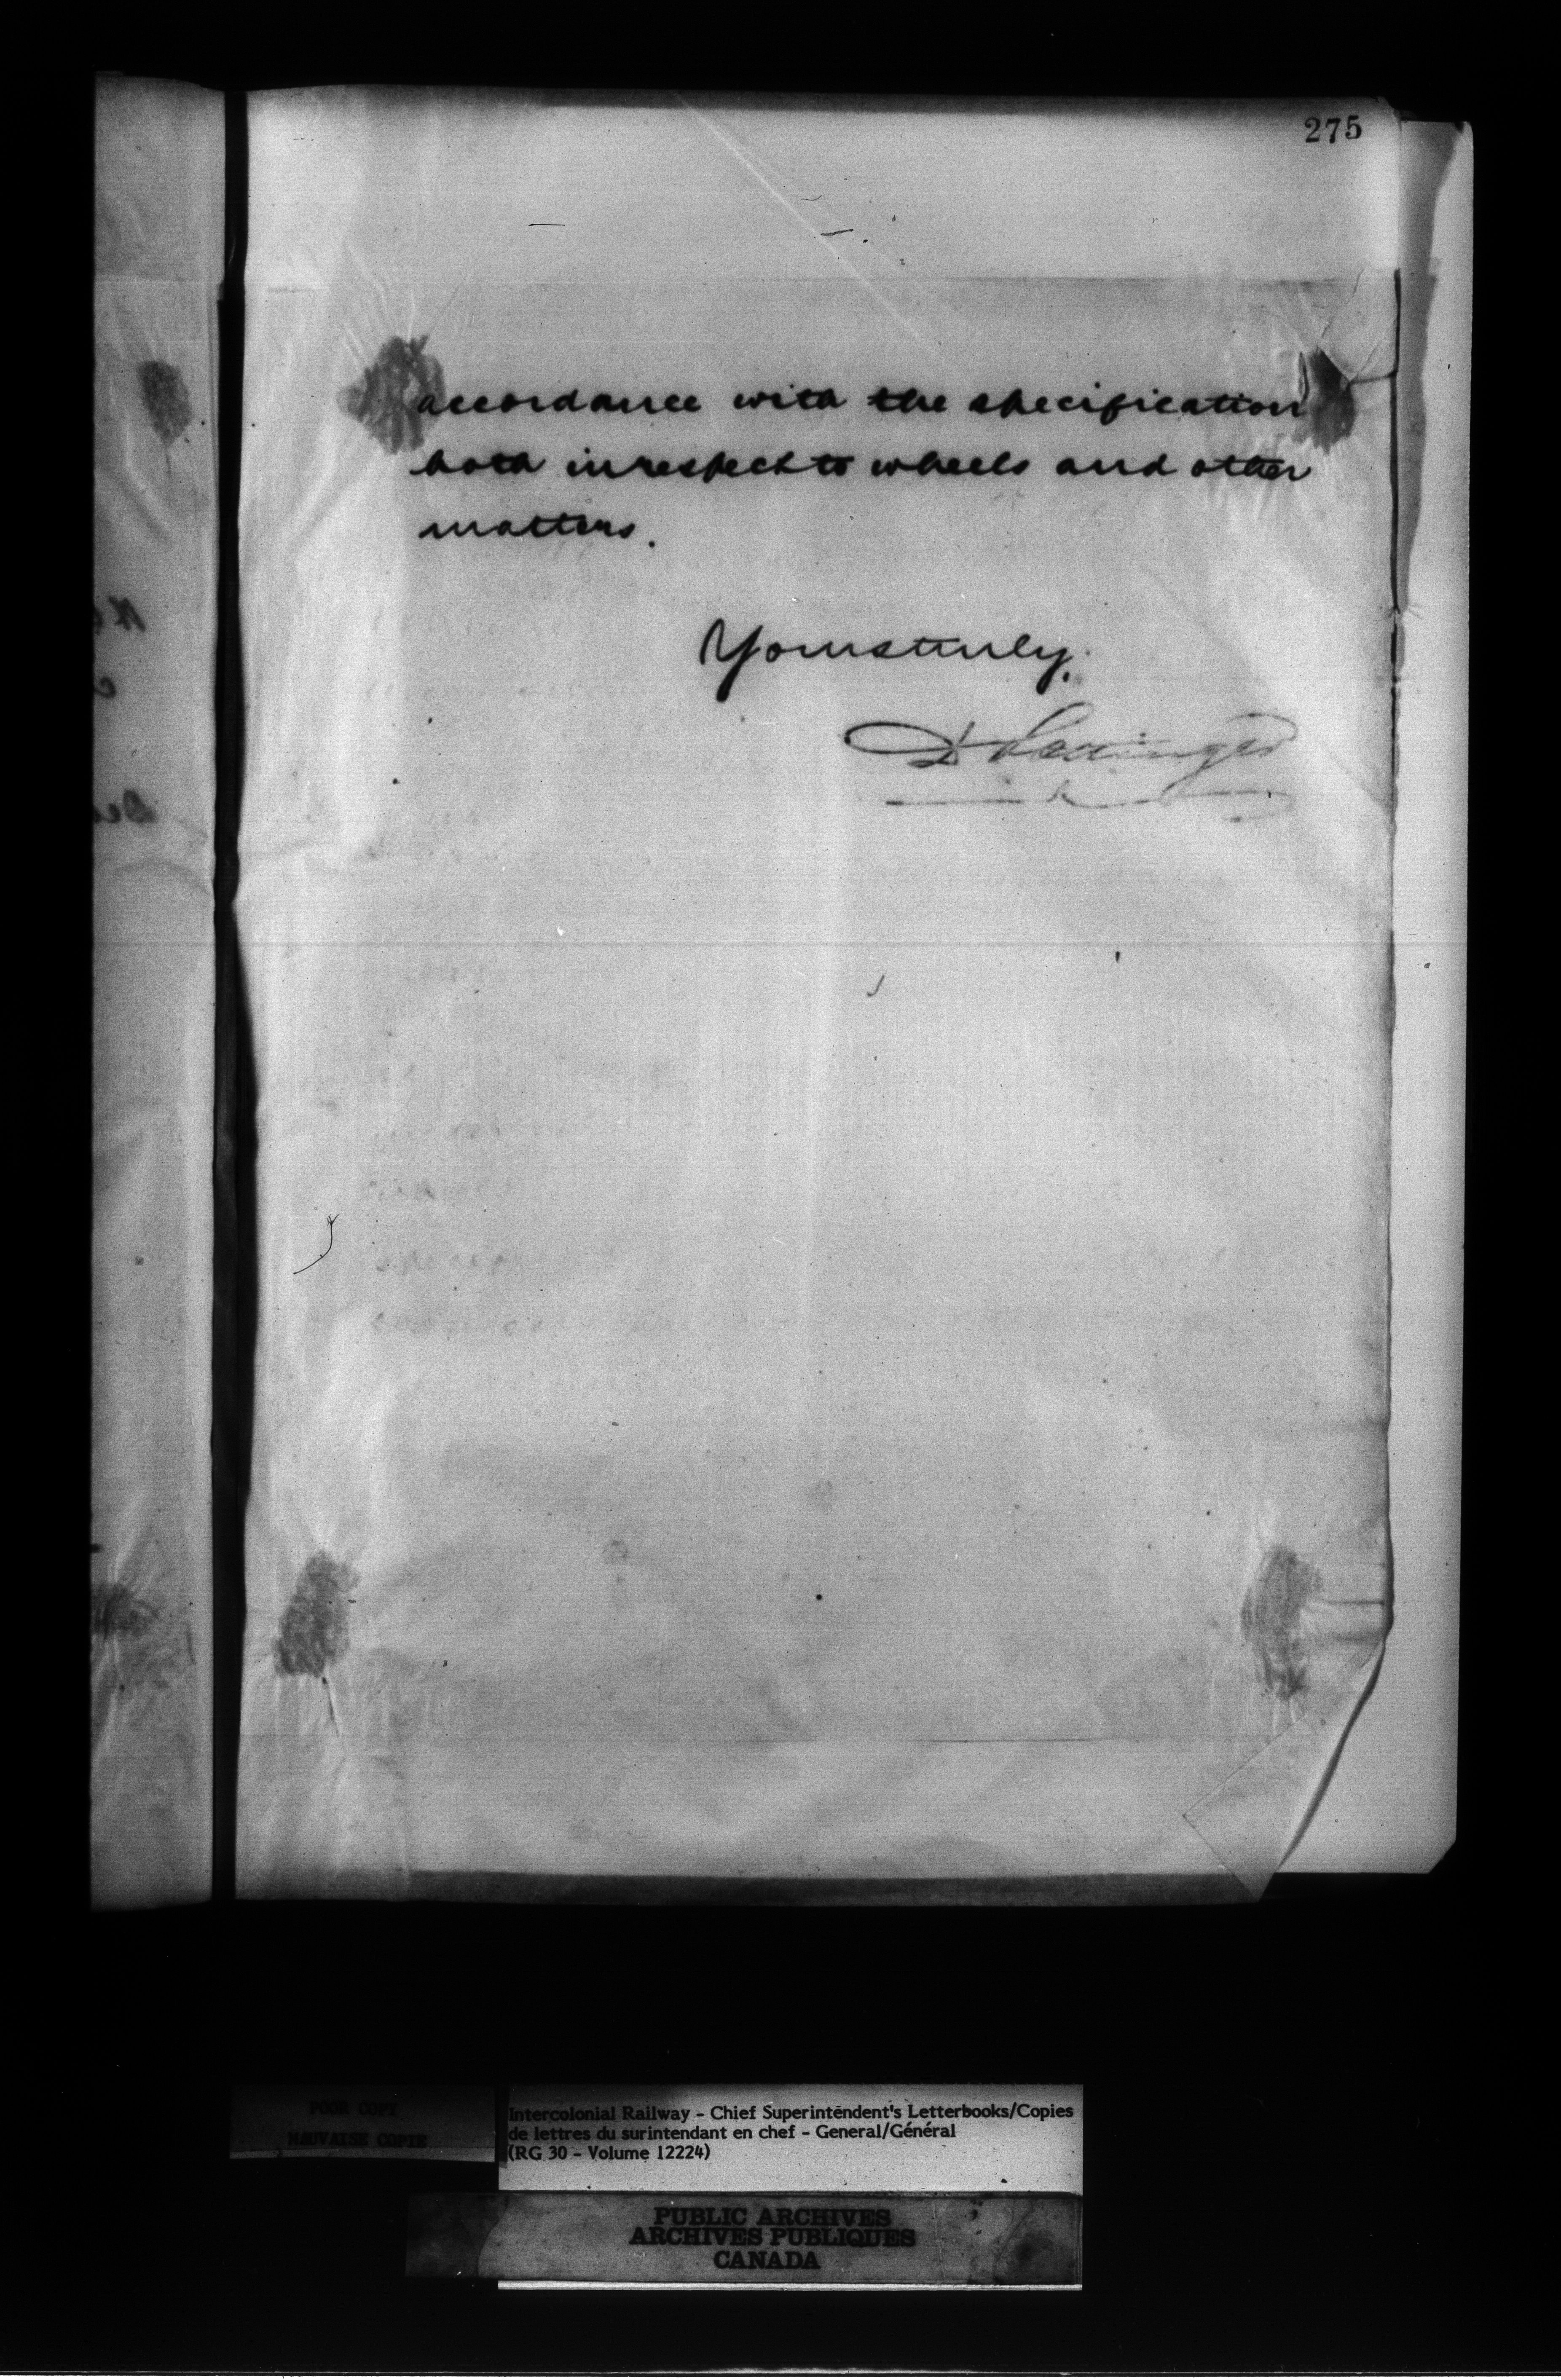 275
accordance with the specification
both in respect to wheels and other
matters.
Yours truly,
D Pottinger
POOR COPY
MAUVAISE COPIE
Intercolonial Railway - Chief Superintendent's Letterbooks/Copies
de lettres du surintendant en chef - General/Général
(RG 30 - Volume 12224)
PUBLIC ARCHIVES
ARCHIVES PUBLIQUES
CANADA